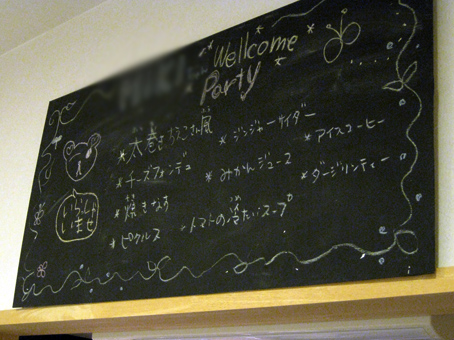 Wellcome
Party
*太巻きちらこさん風
*チーズフォンデュ
*焼きなす
*ピクルス
*ジンジャーサイダー
*みかんジュース
*トマトの冷たいスープ
*アイスコーヒー
*ダージリンティー
いらっしゃ
いませ